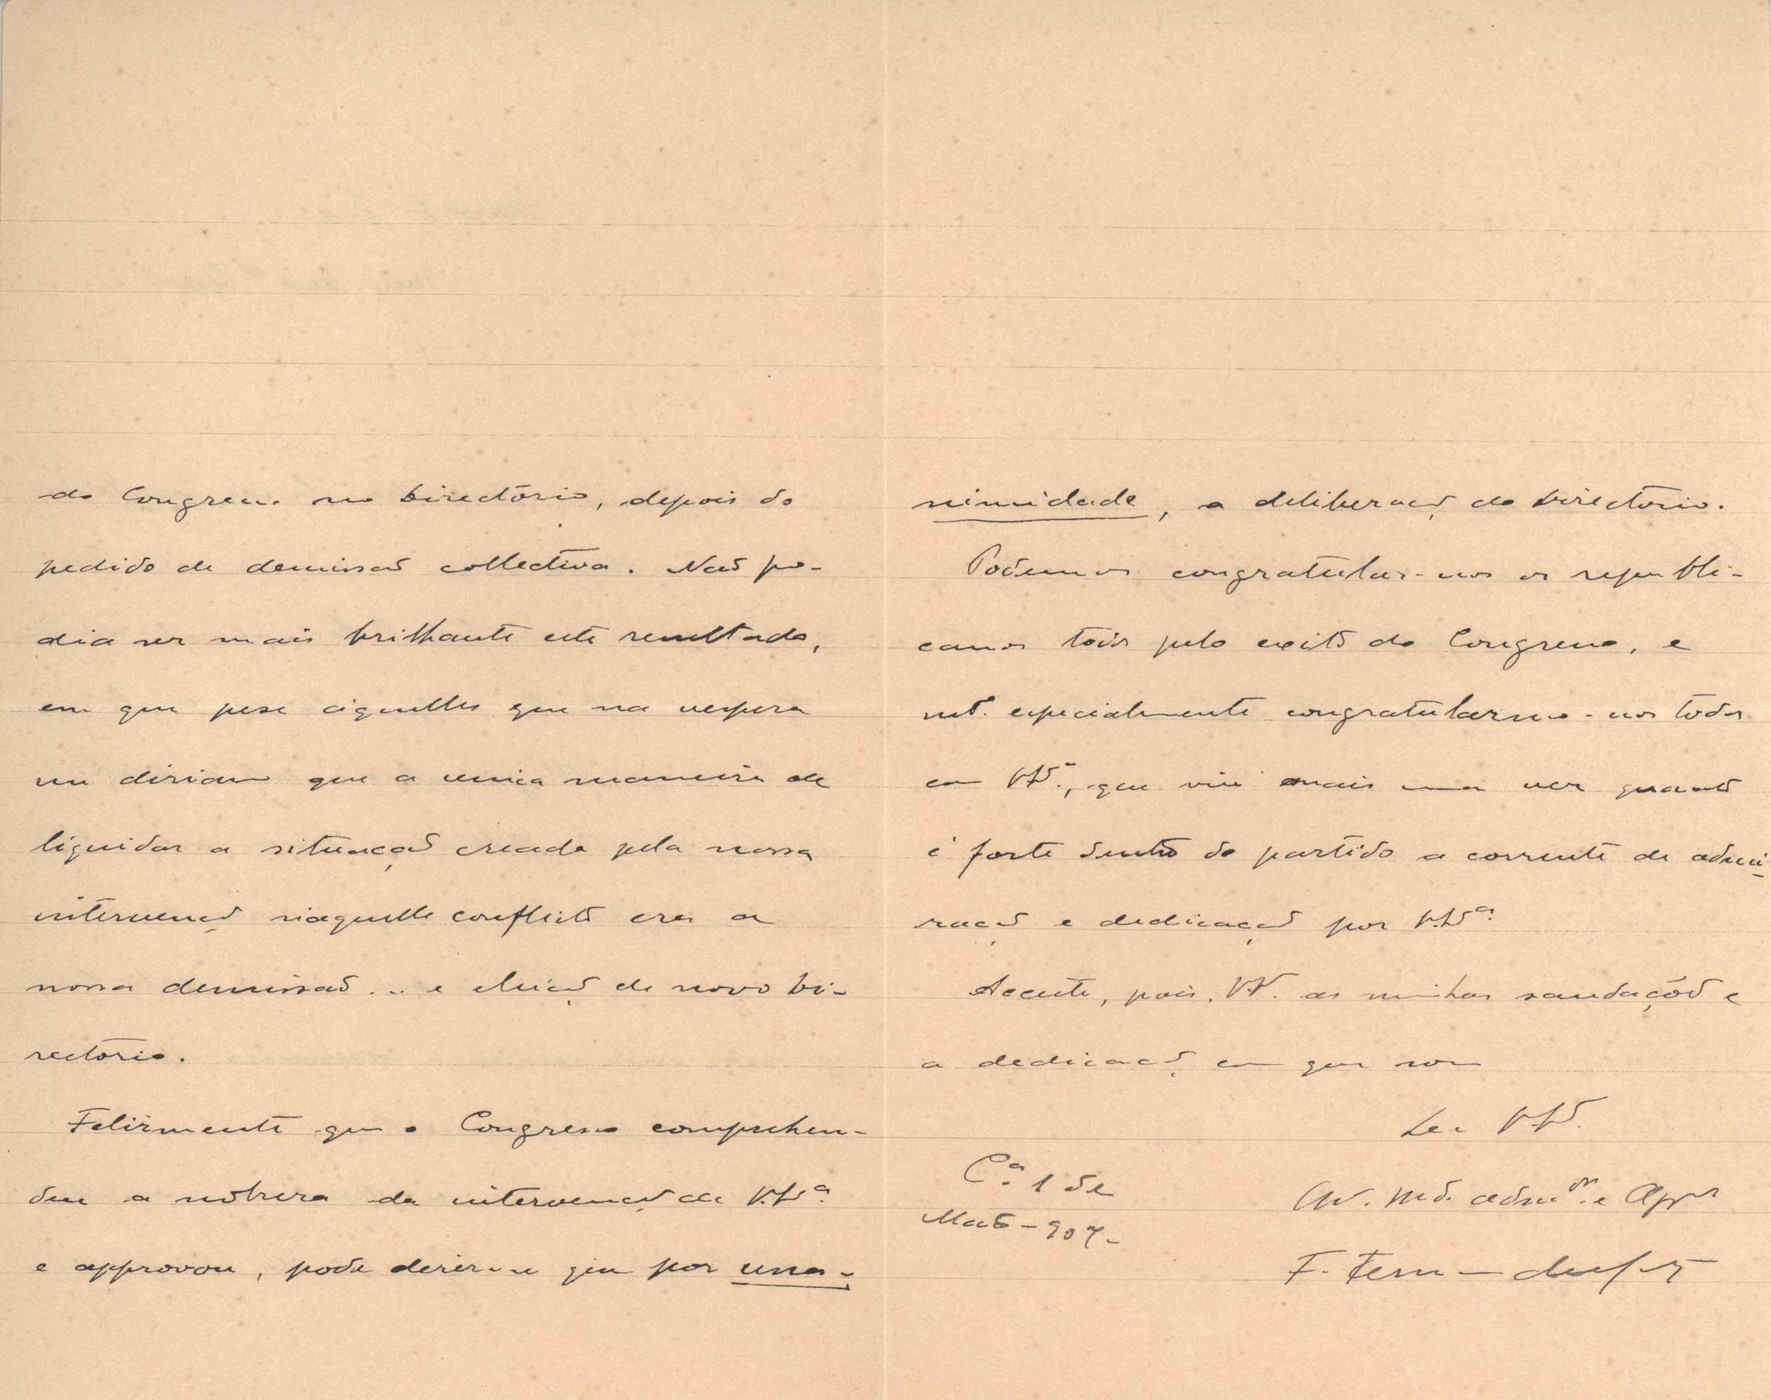 do Congresso no Directório, depois do
pedido de demissão collectiva. Não po-
dia ser mais brilhante este resultado,
em que pese áquelles que na vespera
me diziam que a unica maneira de
liquidar a situação creada pela nossa
intervenção n'aquelle conflicto era a
nossa demissão... e eleição de novo Di-
rectório.
Felizmente que o Congresso comprehen-
deu a nobreza da intervenção de V. Exª
e approvou, pode dizer-se que por una-
nimidade, a deliberação do Directório.
Podemos congratular-nos os republi-
canos todos pelo exito do Congresso, e
mto. especialmente congratularmo-nos todos
com V. Exª, que viu mais uma vez quanto
é forte dentro do partido a corrente de admi-
ração e dedicação por V. Exª
Acceite, pois, V. Exª as minhas saudações e
a dedicação com que sou
De V. Exª
Cª 1 de
Maio - 907-
mto. admdor. e
F. Fern